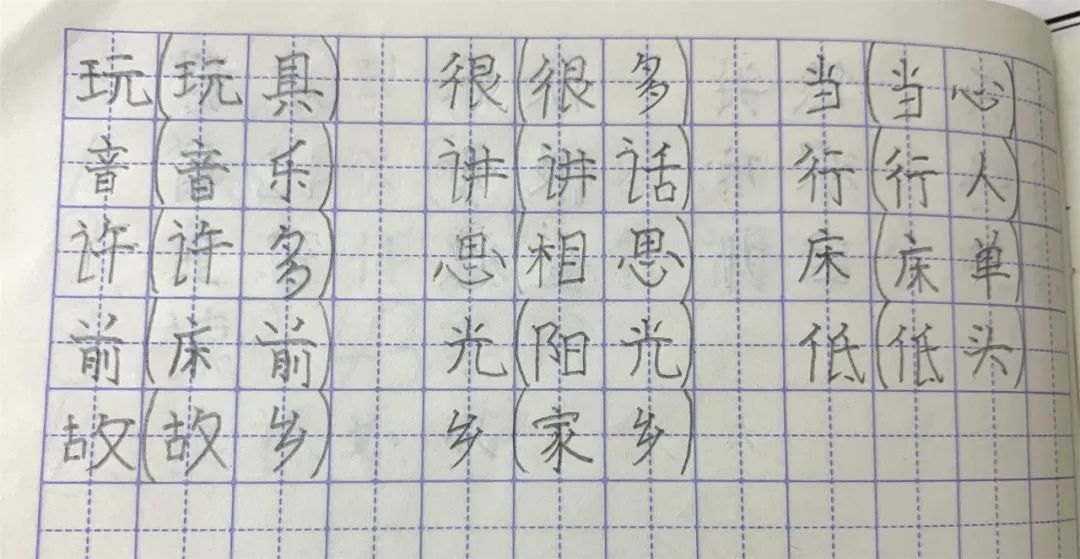 玩(玩具) 很(很多) 当(当心)
音(音乐) 讲(讲话) 行(行人)
许(许多) 思(相思) 床(床单)
前(床前) 光(阳光) 低(低头)
故(故乡) 乡(家乡)